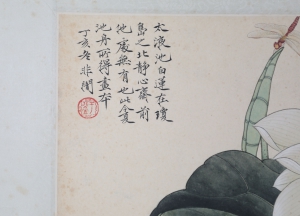 太液池白蓮在瓊
島之北靜心齋前
他處無有也此余夏
池丹所得畫本
丁亥冬非闇